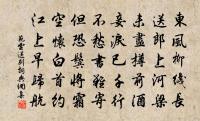 東風柳線長
送郎上河梁
未盡樽前酒
妾淚已千行
不愁書難寄
但恐鬢將霜
空懷白首約
江上早歸航
范雲送別詞典網集